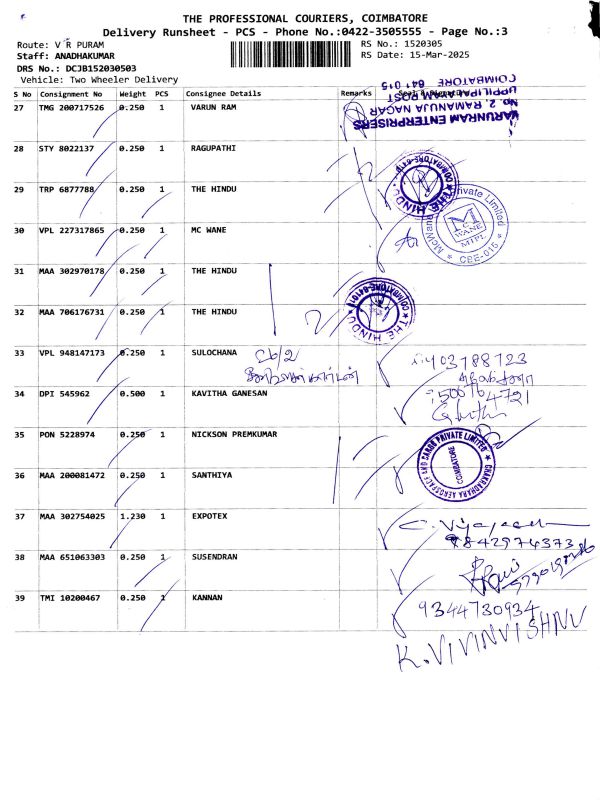 THE PROFESSIONAL COURIERS, COIMBATORE
Delivery Runsheet - PCS - Phone No.:0422-3505555 - Page No.:3
Route: V R PURAM
RS No.: 1520305
Staff: ANADHAKUMAR
RS Date: 15-Mar-2025
DRS No.: DCJB152030503
Vehicle: Two Wheeler Delivery
S No Consignment No Weight PCS Consignee Details Remarks
VARUNRAM ENTERPRISERS
No 2, RAMANUJA NAGAR
UPPILIPALAYAM POST
COIMBATORE 641 015
27 TMG 200717526 0.250 1 VARUN RAM
28 STY 8022137 0.250 1 RAGUPATHI
★ THE HINDU ★ COIMBATORE-641018
29 TRP 6877788 0.250 1 THE HINDU
30 VPL 227317865 0.250 1 MC WANE
McWane Private Limited
MC WANE
MIPL
* CBE-015 *
31 MAA 302970178 0.250 1 THE HINDU
32 MAA 706176731 0.250 1 THE HINDU
★ THE HINDU ★ COIMBATORE-641018
33 VPL 948147173 0.250 1 SULOCHANA 26/2
34 DPI 545962 0.500 1 KAVITHA GANESAN
35 PON 5228974 0.250 1 NICKSON PREMKUMAR
CHAKRADHARA AEROSPACE AND CARGO PRIVATE LIMITED
COIMBATORE
36 MAA 200081472 0.250 1 SANTHIYA
37 MAA 302754025 1.230 1 EXPOTEX
9842974373
38 MAA 651063303 0.250 1 SUSENDRAN
39 TMI 10200467 0.250 1 KANNAN
9344730934
K. VIVINVISHNU